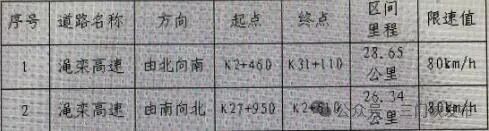 序号 道路名称 方向 起点 终点 区间里程 限速值
1 渑栾高速 由北向南 K2+460 K31+110 28.65公里 80km/h
2 渑栾高速 由南向北 K27+950 K2+610 26.34公里 80km/h
公众号